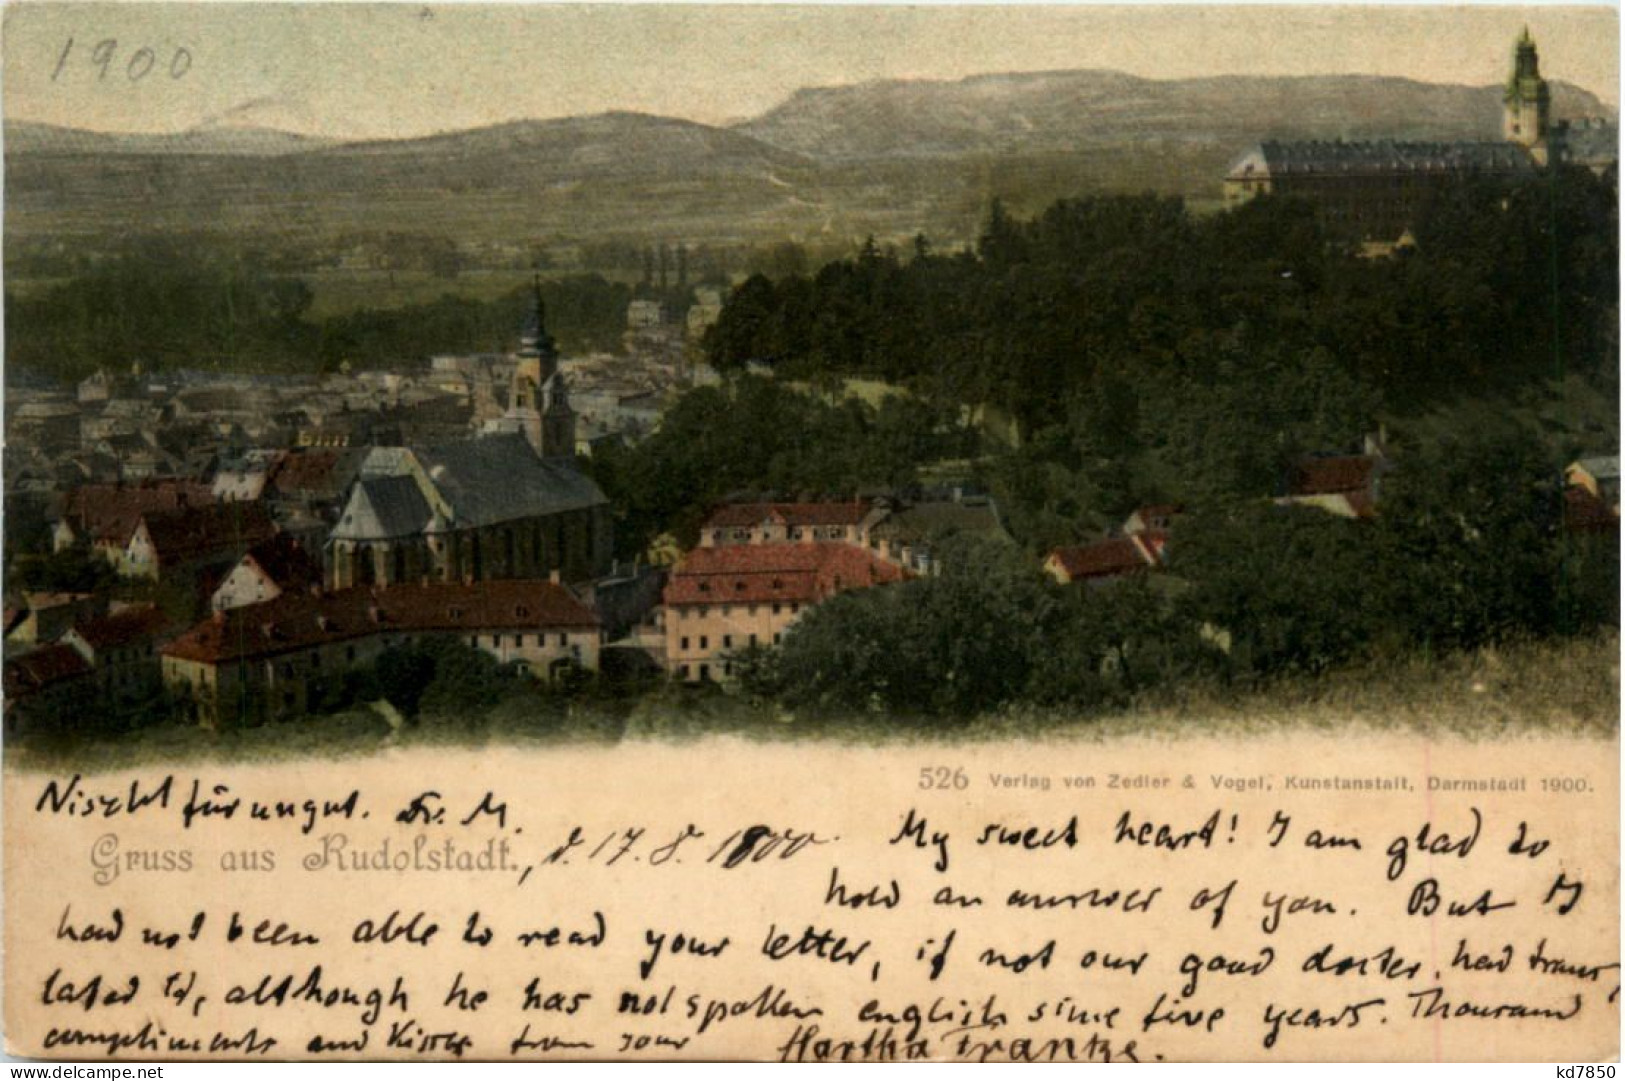 1900
526 Verlag von Zedler & Vogel, Kunstanstalt, Darmstadt 1900.
Nischt für ungut. Fr. M.
Gruss aus Rudolstadt., d. 17. 8. 1900.
My sweet heart! I am glad to
hold an answer of you. But I
had not been able to read your letter, if not our good docter, had trans
lated it, although he has not spoken english sime five years. Thousand
compliments and Kisses from your Hartha Franke.
kd7850